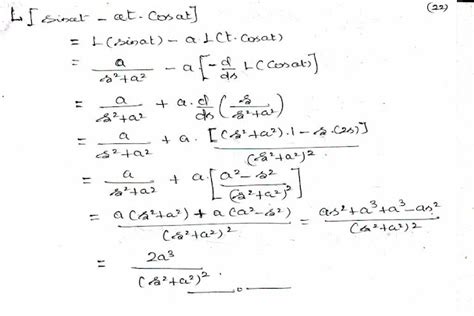 (22)
L[sinat - at. cosat]
= L(sinat) - a L(t. cosat)
= a/(s²+a²) - a[-d/ds L(cosat)]
= a/(s²+a²) + a. d/ds (s/(s²+a²))
= a/(s²+a²) + a. [(s²+a²).1 - s.(2s)]/(s²+a²)²
= a/(s²+a²) + a. [(a²-s²)/(s²+a²)²]
= (a(s²+a²) + a(a²-s²))/(s²+a²)² = (as²+a³+a³-as²)/(s²+a²)²
= 2a³/(s²+a²)².